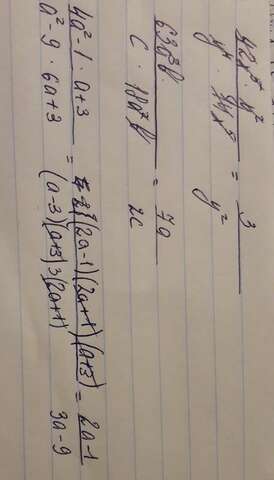 42x⁵ · y² / y⁴ · 14x⁵ = 3 / y²
63a³b / c · 18a²b = 7a / 2c
4a²-1 · a+3 / a²-9 · 6a+3 = (2a-1)(2a+1)(a+3) / (a-3)(a+3)3(2a+1) = 2a-1 / 3a-9